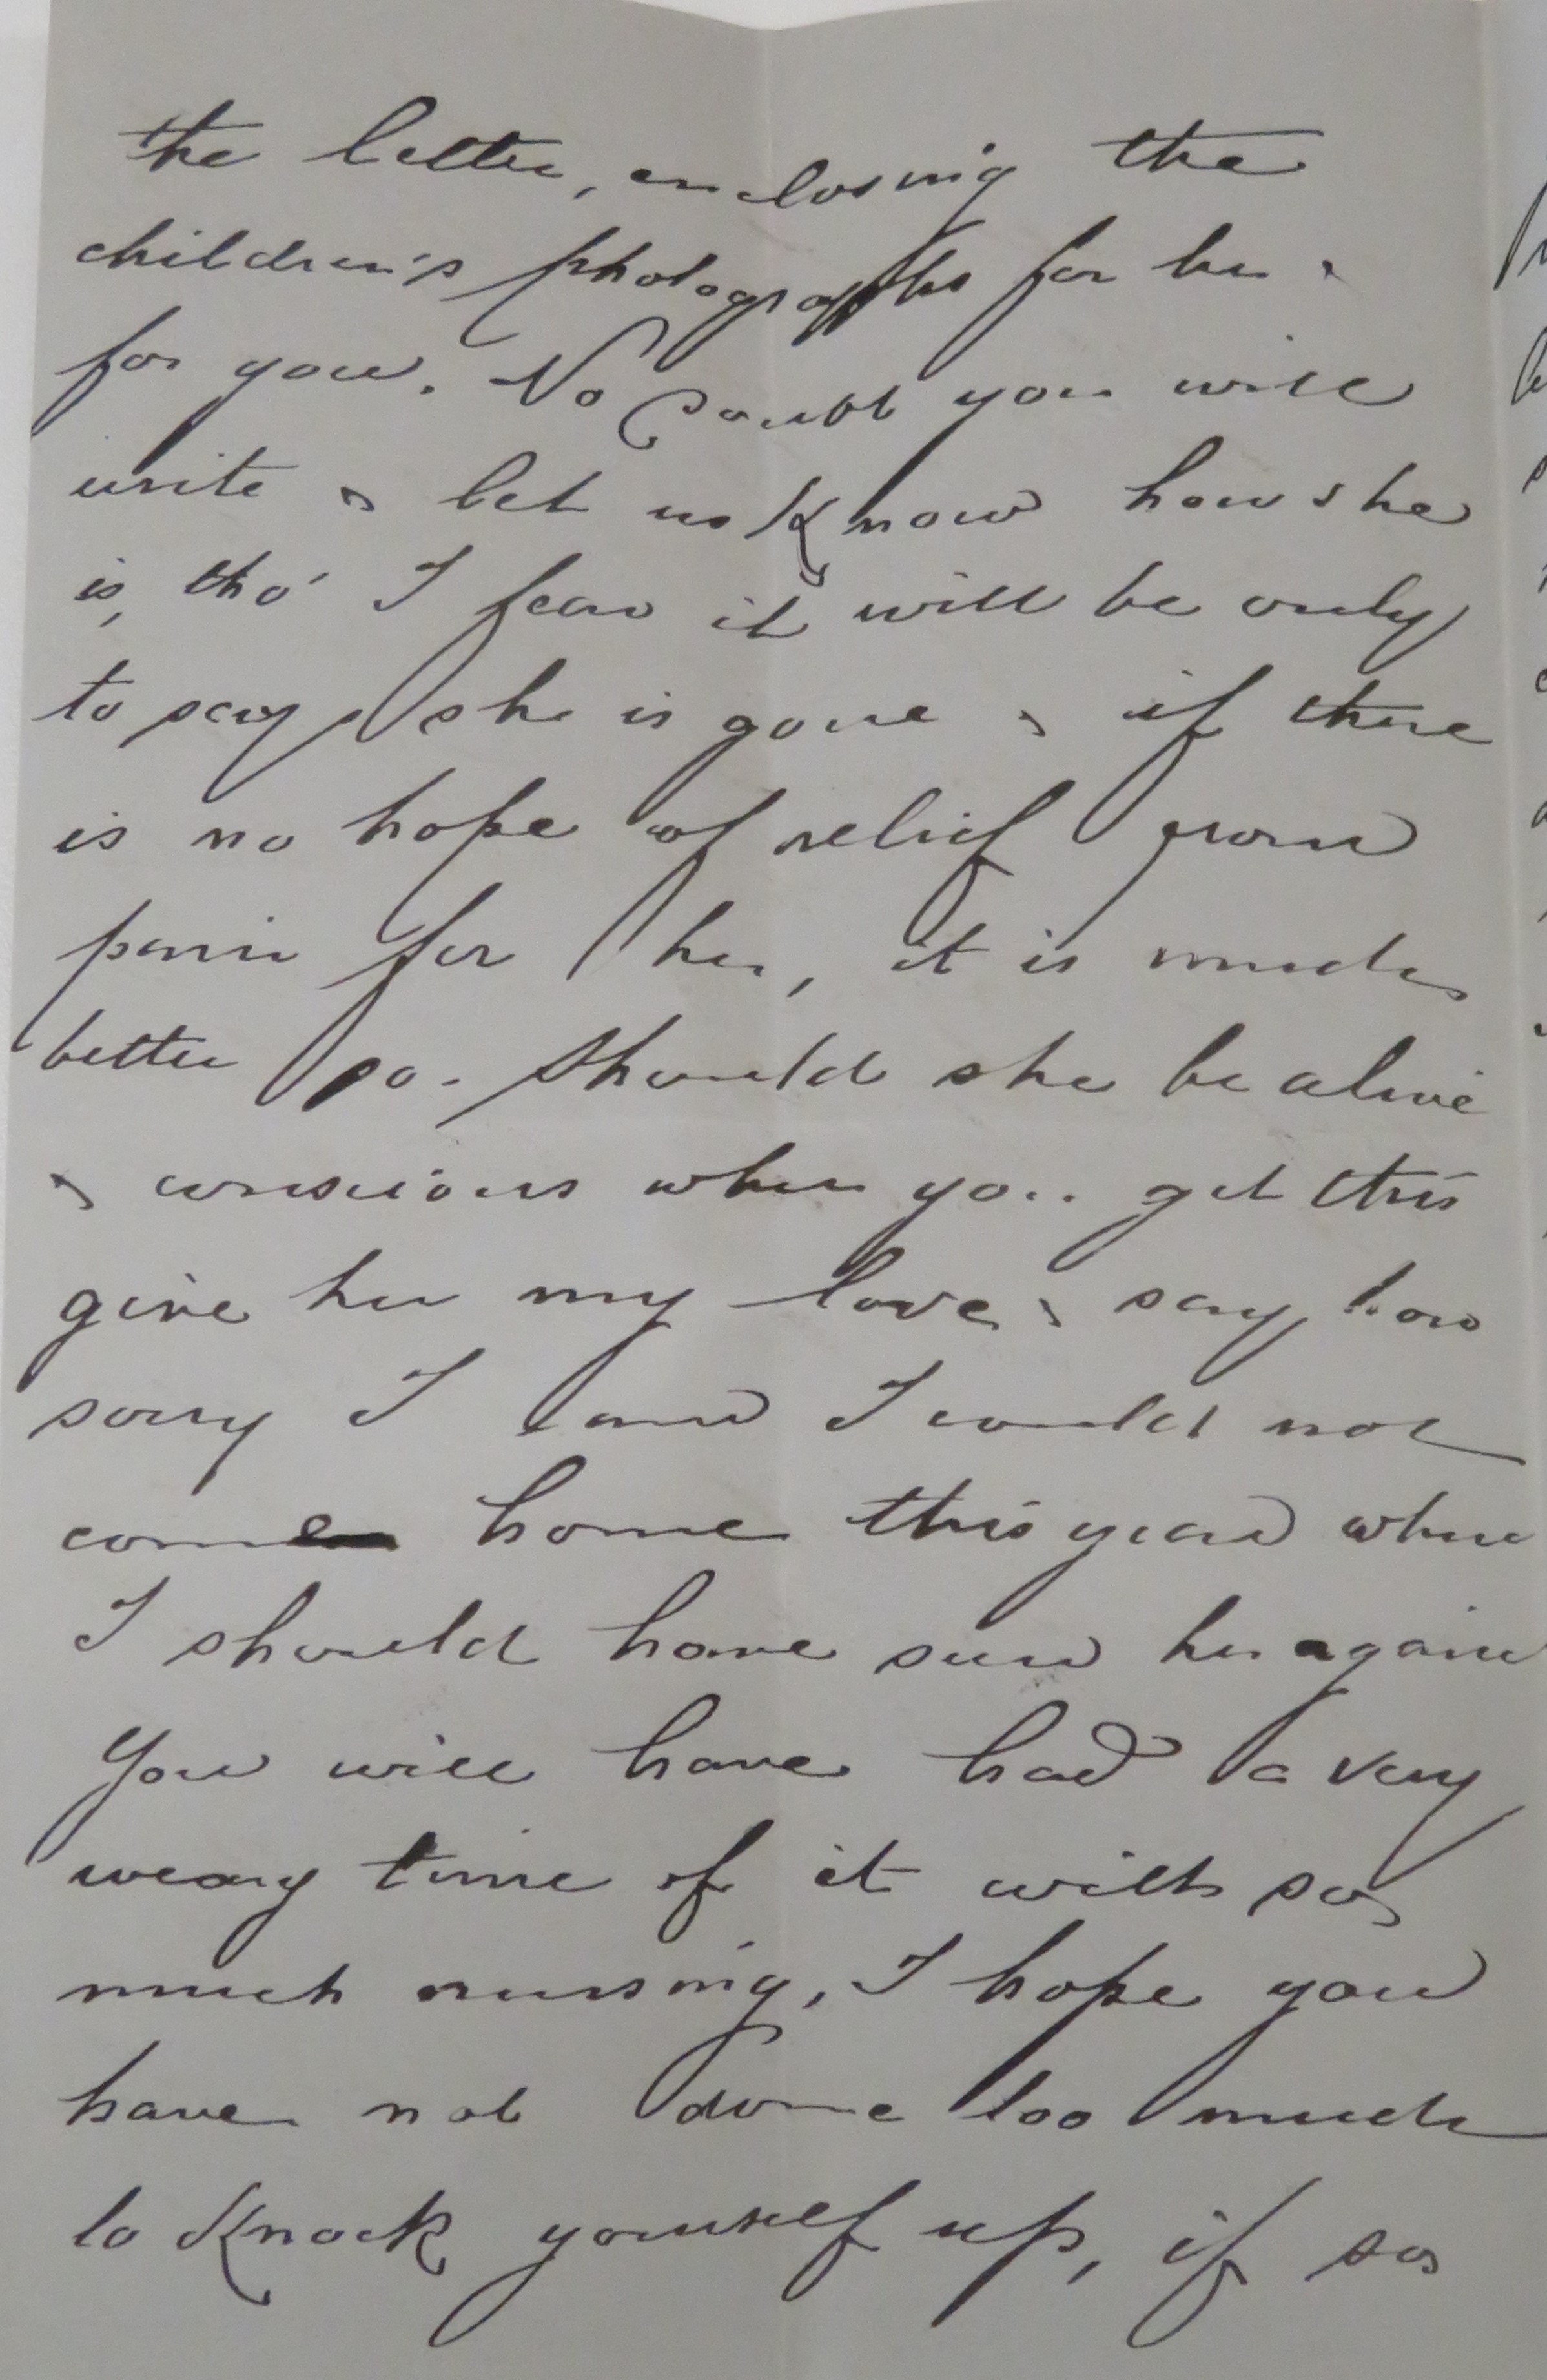 the letter, enclosing the
children's photographs for her &
for you. No Doubt you will
write & let us Know how she
is, tho' I fear it will be only
to say, she is gone & if there
is no hope of relief from
pain for her, it is much
better so. Should she be alive
& conscious when you get this
give her my love, & say, how
sorry I am I could not
come home this year when
I should have seen her again
You will have had a very
weary time of it with so
much nursing, I hope you
have not done too much
to Knock yourself up, if so